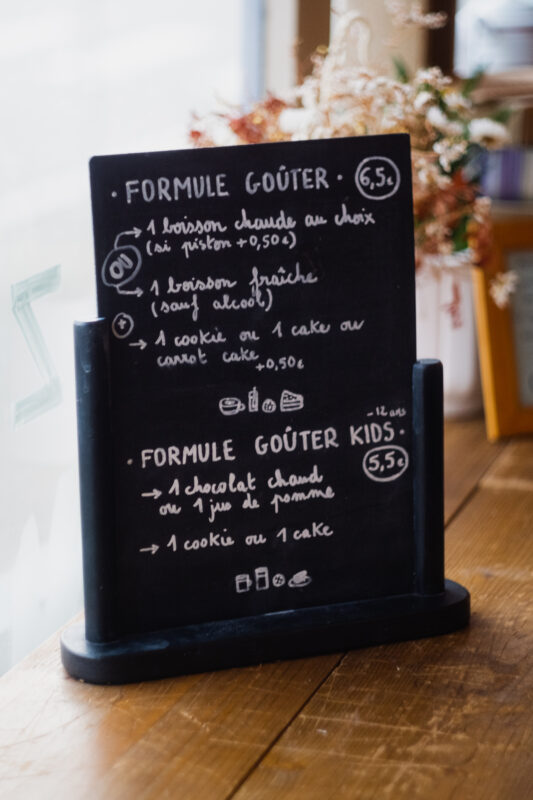 · FORMULE GOÛTER · 6,5€
→ 1 boisson chaude au choix
(si piston +0,50€)
OU
→ 1 boisson fraîche
(sauf alcool)
+
→ 1 cookie ou 1 cake ou
carrot cake +0,50€
- 12 ans
· FORMULE GOÛTER KIDS ·
5,5€
→ 1 chocolat chaud
ou 1 jus de pomme
→ 1 cookie ou 1 cake